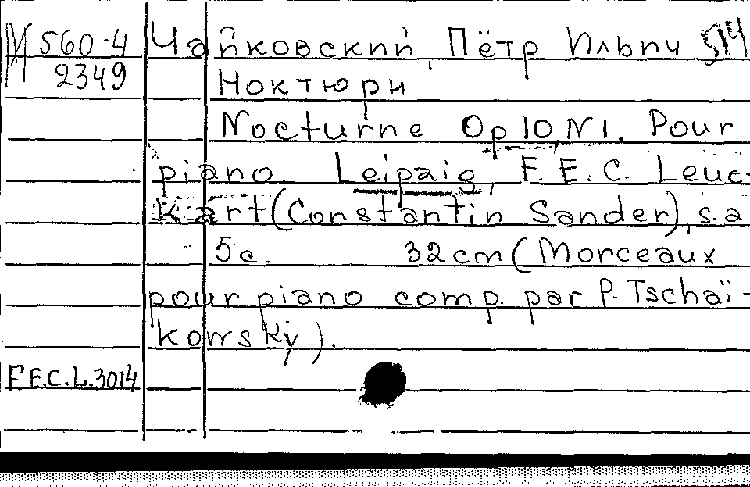 М 560-4 Чайковский, Пётр Ильич
2349 Ноктюрн
Nocturne Op 10, N1. Pour
piano. Leipzig, F.E.C. Leuc-
kart (Constantin Sander), s.a
5c. 32cm (Morceaux
pour piano comp. par P. Tschaï-
kowsky).
F.E.C.L.3014